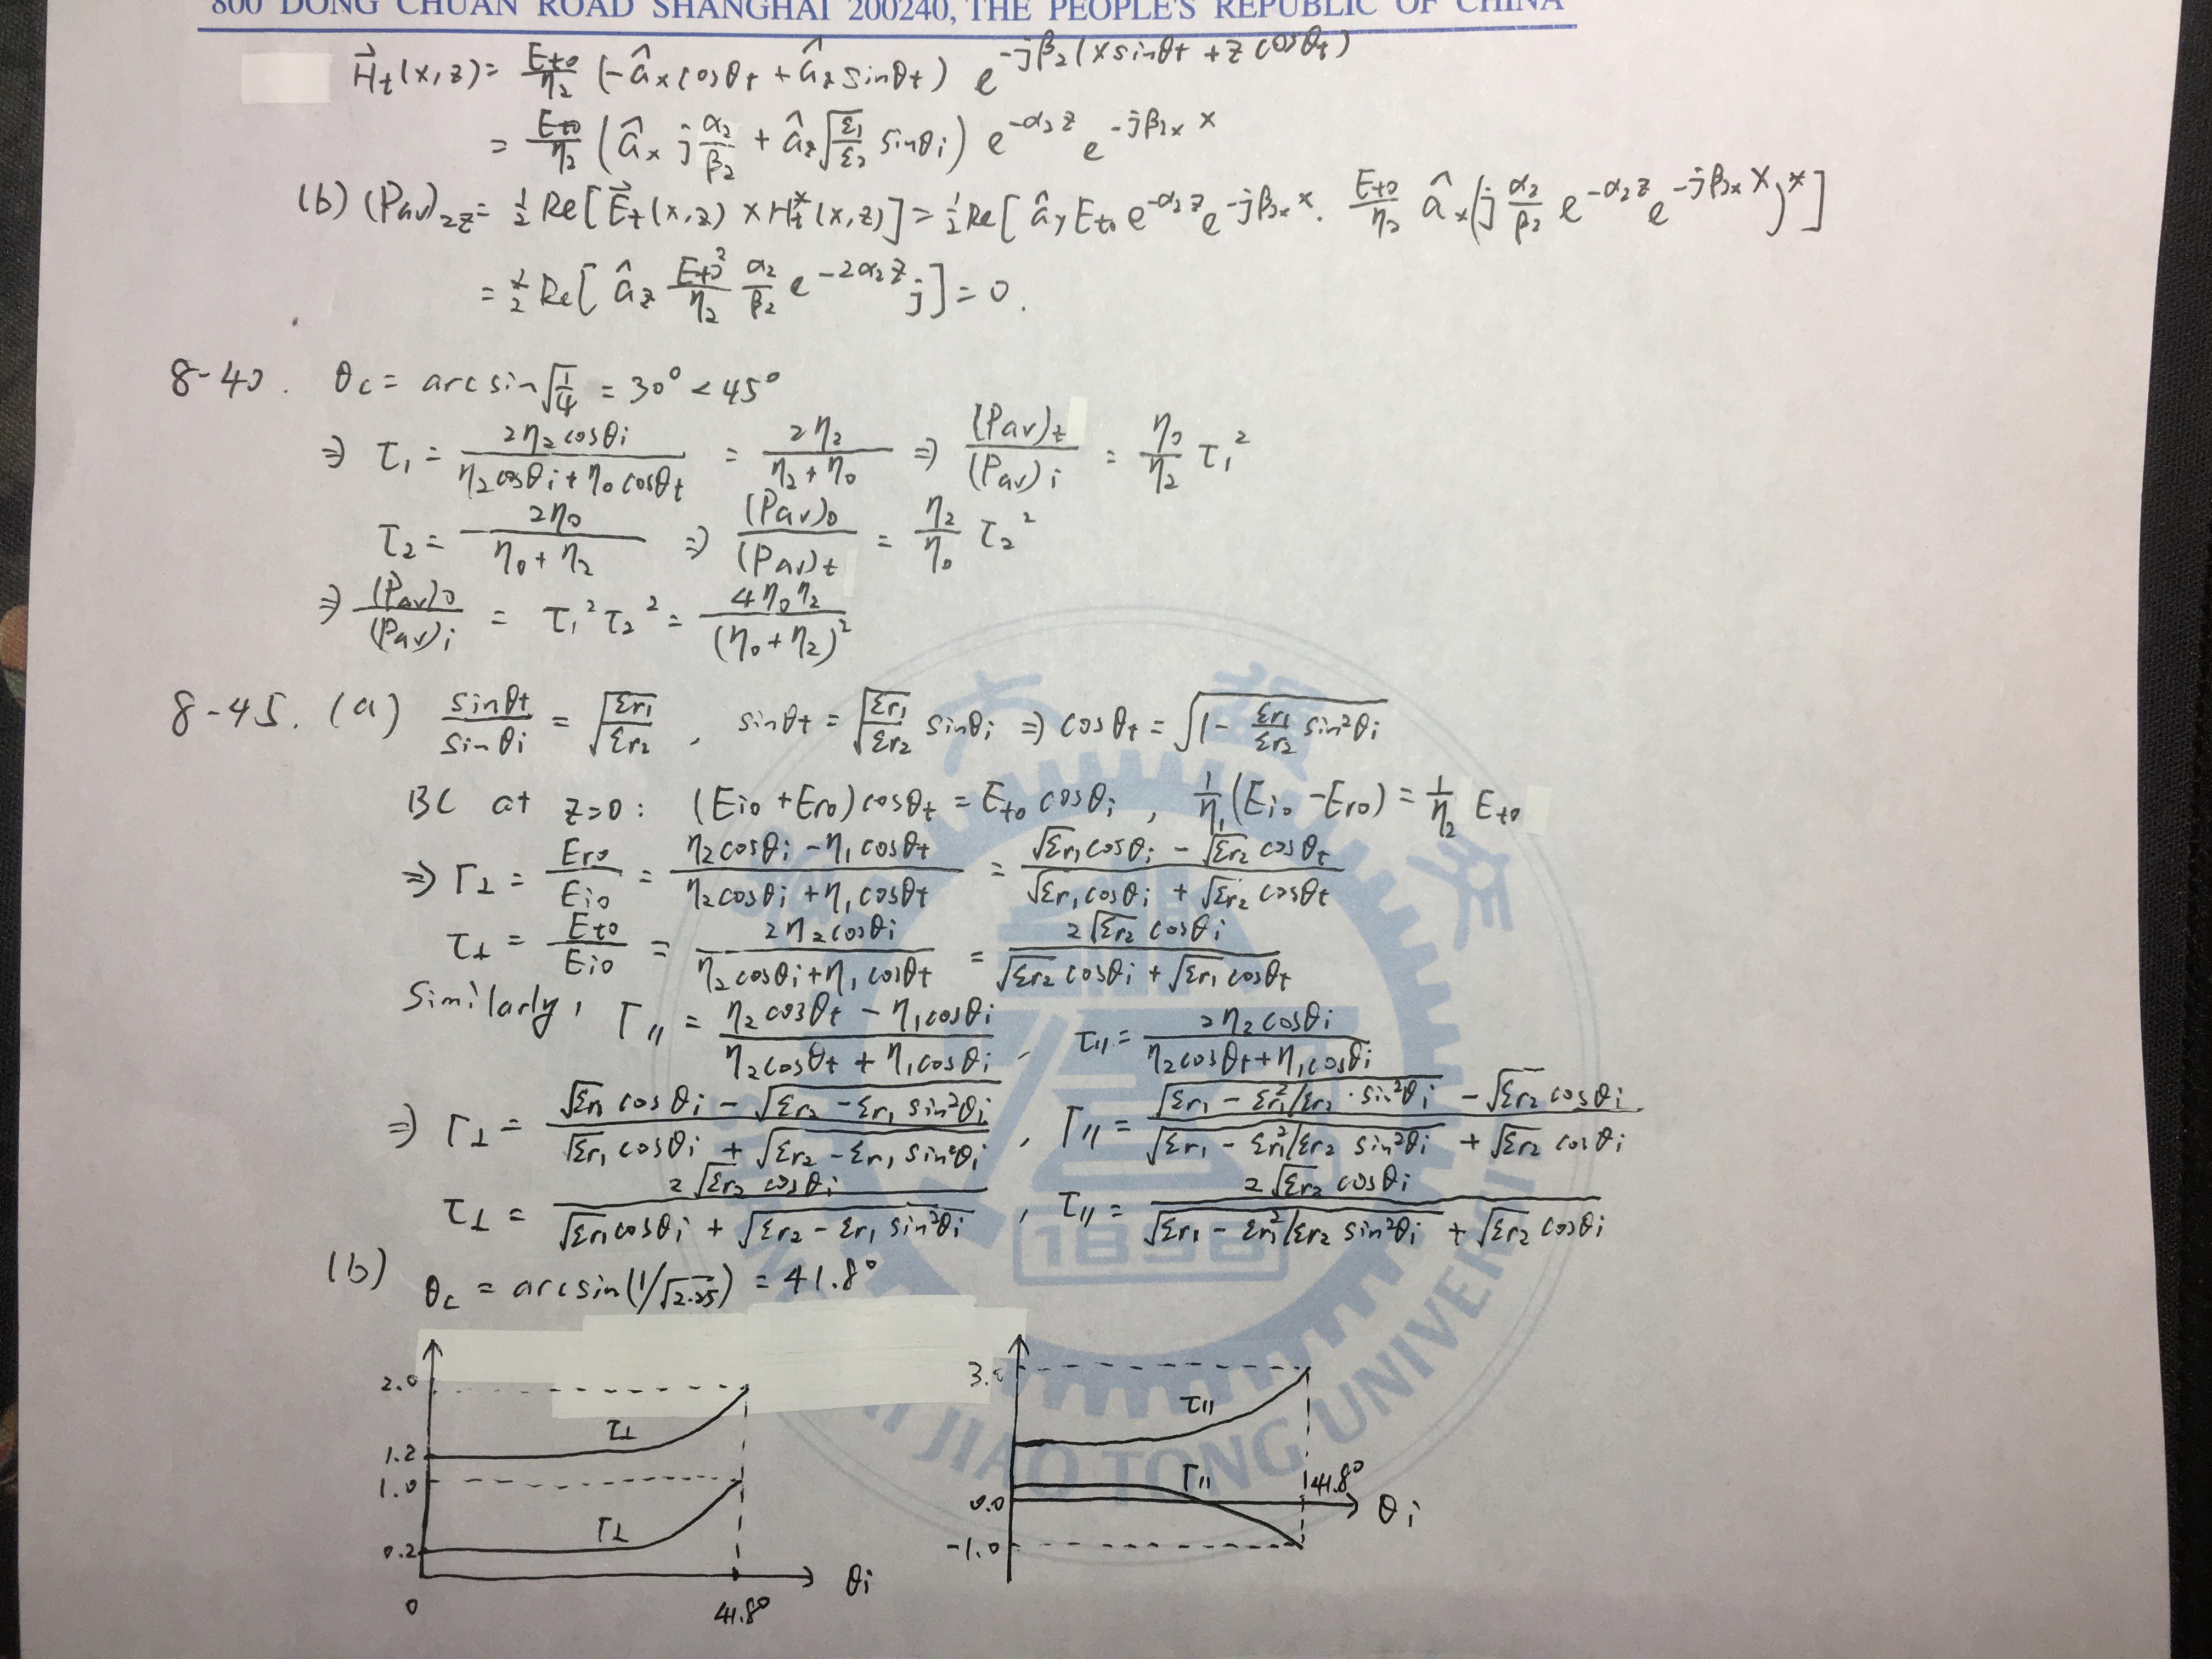 800 DONG CHUAN ROAD SHANGHAI 200240, THE PEOPLE'S REPUBLIC OF CHINA
H⃗t(x,z) = Et0/η2 (-âx cosθt + âz sinθt) e^{-jβ2(x sinθt + z cosθt)}
= Et0/η2 (âx j α2/β2 + âz √(ε1/ε2) sinθi) e^{-α2z} e^{-jβ2x x}
(b) (Pav)2z = 1/2 Re[E⃗t(x,z) × H⃗t*(x,z)] = 1/2 Re[ây Et0 e^{-α2z} e^{-jβ2x x} · Et0/η2 âx (j α2/β2 e^{-α2z} e^{-jβ2x x})*]
= 1/2 Re[âz Et0²/η2 α2/β2 e^{-2α2z} j] = 0.
8-40. θc = arcsin√(1/4) = 30° < 45°
⇒ τ1 = 2η2cosθi/(η2cosθi + η0cosθt) = 2η2/(η2 + η0) ⇒ (Pav)t/(Pav)i = η0/η2 τ1²
τ2 = 2η0/(η0 + η2) ⇒ (Pav)o/(Pav)t = η2/η0 τ2²
⇒ (Pav)o/(Pav)i = τ1²τ2² = 4η0η2/(η0 + η2)²
8-45. (a) sinθt/sinθi = √(εr1/εr2), sinθt = √(εr1/εr2) sinθi ⇒ cosθt = √(1 - εr1/εr2 sin²θi)
BC at z=0: (Ei0 + Er0)cosθt = Et0 cosθi, 1/η1 (Ei0 - Er0) = 1/η2 Et0
⇒ Γ⊥ = Er0/Ei0 = (η2cosθi - η1cosθt)/(η2cosθi + η1cosθt) = (√εr1 cosθi - √εr2 cosθt)/(√εr1 cosθi + √εr2 cosθt)
τ⊥ = Et0/Ei0 = 2η2cosθi/(η2cosθi + η1cosθt) = 2√εr2 cosθi/(√εr2 cosθi + √εr1 cosθt)
Similarly, Γ∥ = (η2cosθt - η1cosθi)/(η2cosθt + η1cosθi), τ∥ = 2η2cosθi/(η2cosθt + η1cosθi)
⇒ Γ⊥ = (√εr1 cosθi - √(εr2 - εr1 sin²θi))/(√εr1 cosθi + √(εr2 - εr1 sin²θi)), Γ∥ = (√(εr1 - εr1²/εr2 · sin²θi) - √εr2 cosθi)/(√(εr1 - εr1²/εr2 sin²θi) + √εr2 cosθi)
τ⊥ = 2√εr2 cosθi/(√εr1 cosθi + √(εr2 - εr1 sin²θi)), τ∥ = 2√εr2 cosθi/(√(εr1 - εr1²/εr2 sin²θi) + √εr2 cosθi)
(b) θc = arcsin(1/√2.25) = 41.8°
2.0
1.2
1.0
0.2
0
τ⊥
Γ⊥
41.8°
θi
0.0
-1.0
τ∥
Γ∥
θi
JIAO TONG UNIVERSI